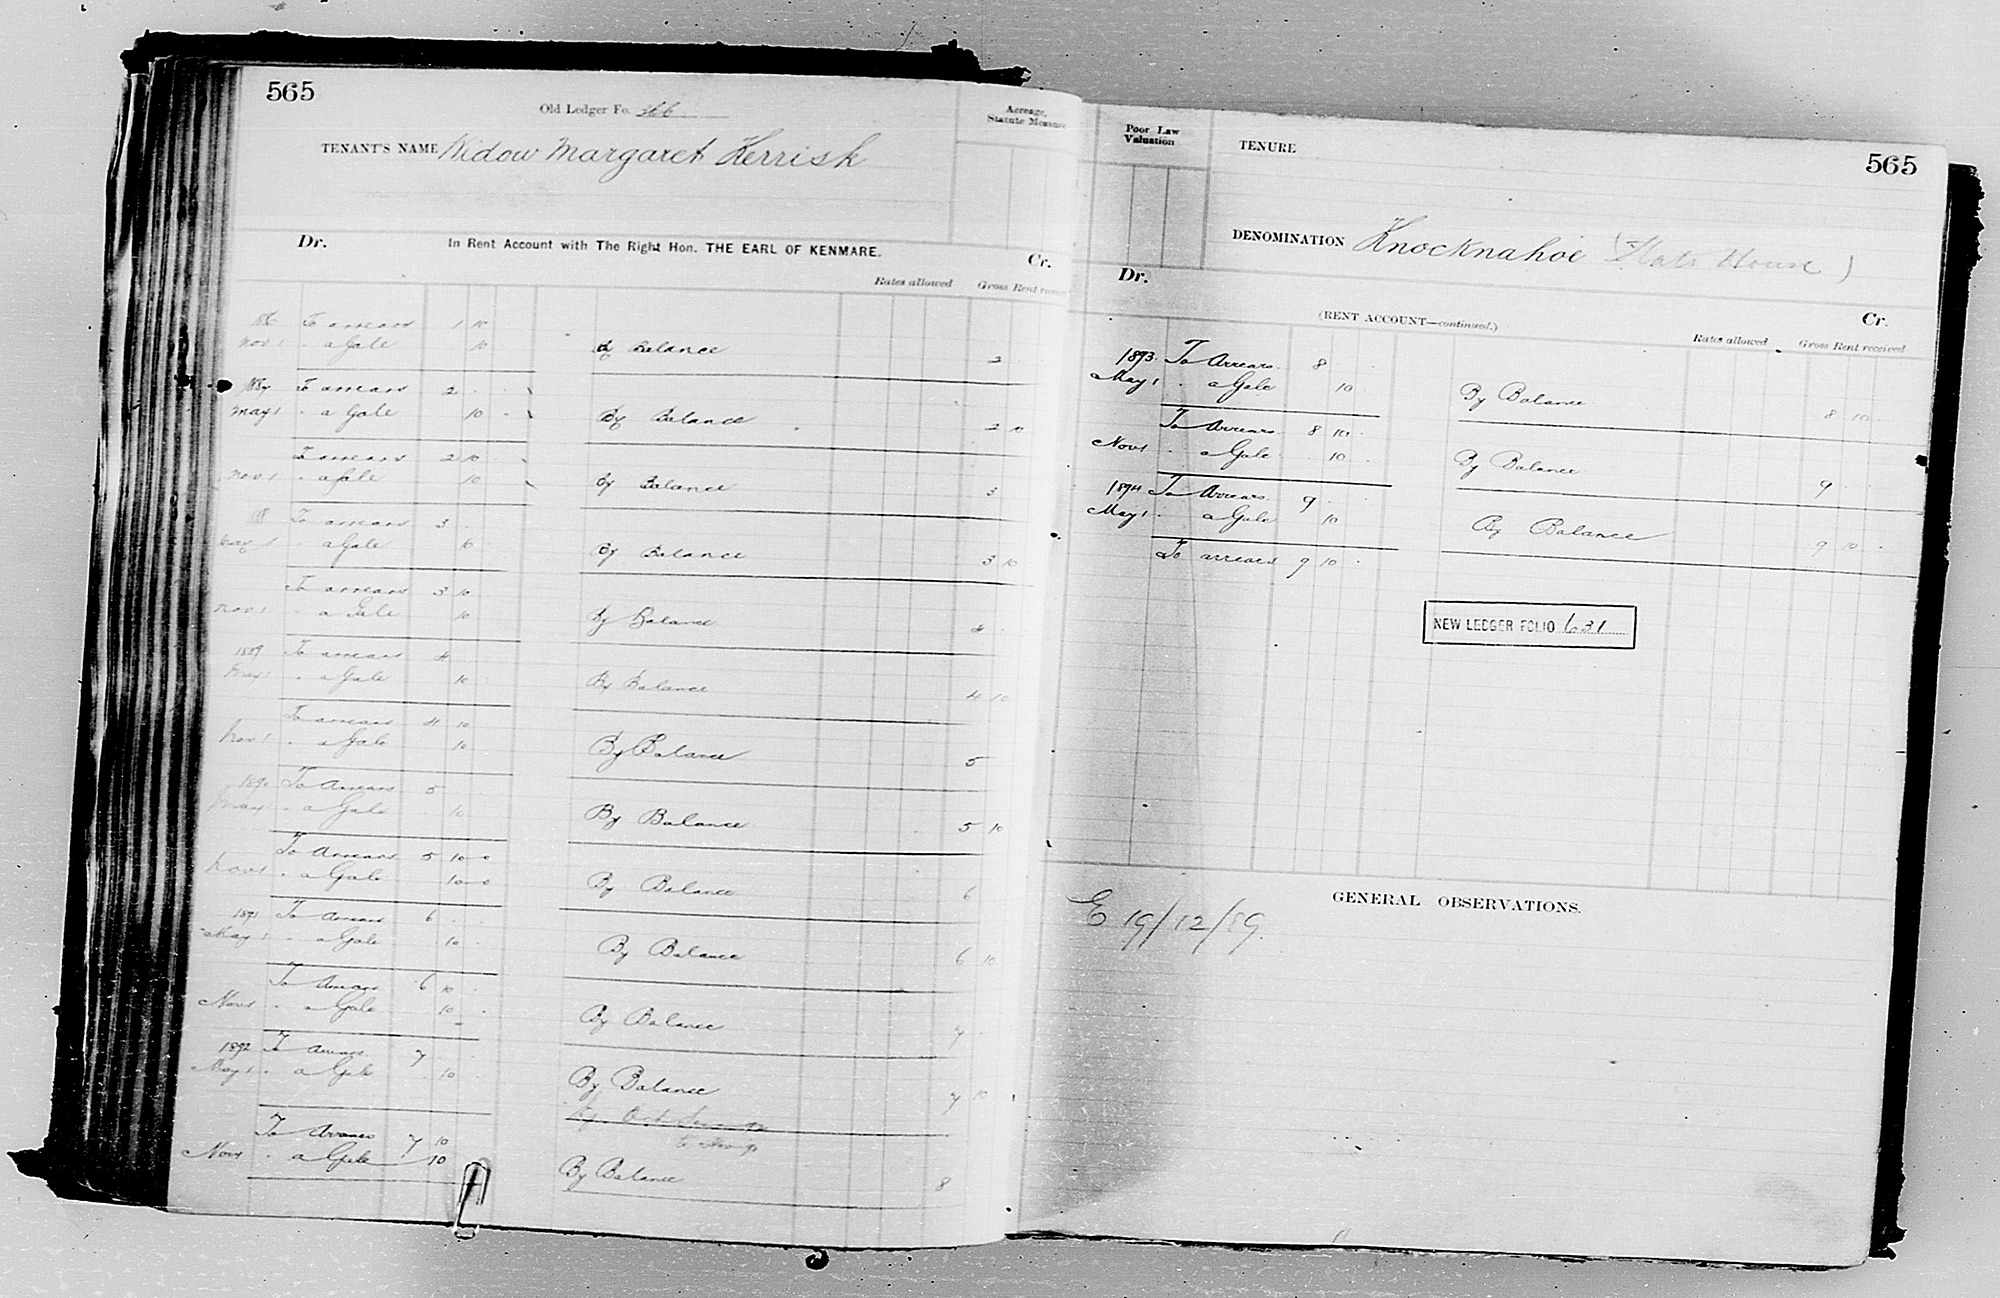 565
Old Ledger Fo. 366
Acreage, Statute Measure
TENANT'S NAME Widow Margaret Kerrisk
Dr. In Rent Account with The Right Hon. THE EARL OF KENMARE. Cr.
Rates allowed Gross Rent received
To arrears 1 10
Nov 1 " a Gale 10 By Balance 2
1887 To arrears 2
May 1 " a Gale 10 By Balance 2 10
To arrears 2 10
Nov 1 " a Gale 10 By Balance 3
To arrears 3
May 1 " a Gale 10 By Balance 3 10
To arrears 3 10
Nov 1 " a Gale 10 By Balance 4
1889 To arrears 4
May 1 " a Gale 10 By Balance 4 10
To arrears 4 10
Nov 1 " a Gale 10 By Balance 5
1890 To Arrears 5
May 1 " a Gale 10 By Balance 5 10
To Arrears 5 10 0
Nov 1 " a Gale 10 0 By Balance 6
1891 To Arrears 6
May 1 " a Gale 10 By Balance 6 10
To Arrears 6 10
Nov 1 " a Gale 10 By Balance 7
1892 To Arrears 7
May 1 " a Gale 10 By Balance 7 10
To Arrears 7 10
Nov 1 " a Gale 10 By Balance 8
Poor Law Valuation
TENURE
565
DENOMINATION Knocknahoe (Slate House)
Dr. Cr.
(RENT ACCOUNT—continued.)
Rates allowed Gross Rent received
1893 To Arrears 8
May 1 " a Gale 10 By Balance 8 10
To Arrears 8 10
Nov 1 " a Gale 10 By Balance 9
1894 To Arrears 9
May 1 " a Gale 10 By Balance 9 10
To arrears 9 10
NEW LEDGER FOLIO 631
GENERAL OBSERVATIONS.
E 19/12/89.